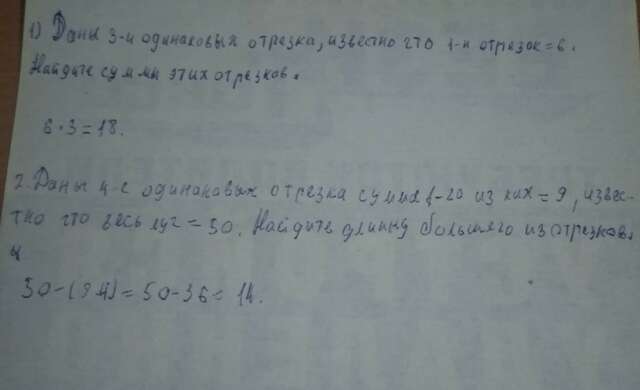 1) Даны 3-и одинаковых отрезка, известно что 1-н отрезок = 6.
Найдите суммы этих отрезков.
6·3=18.
2. Даны 4-е одинаковых отрезка сумма 1-го из них = 9, извес-
тно что весь луч = 50. Найдите длинну большего из отрезков.
50-(9·4)=50-36=14.